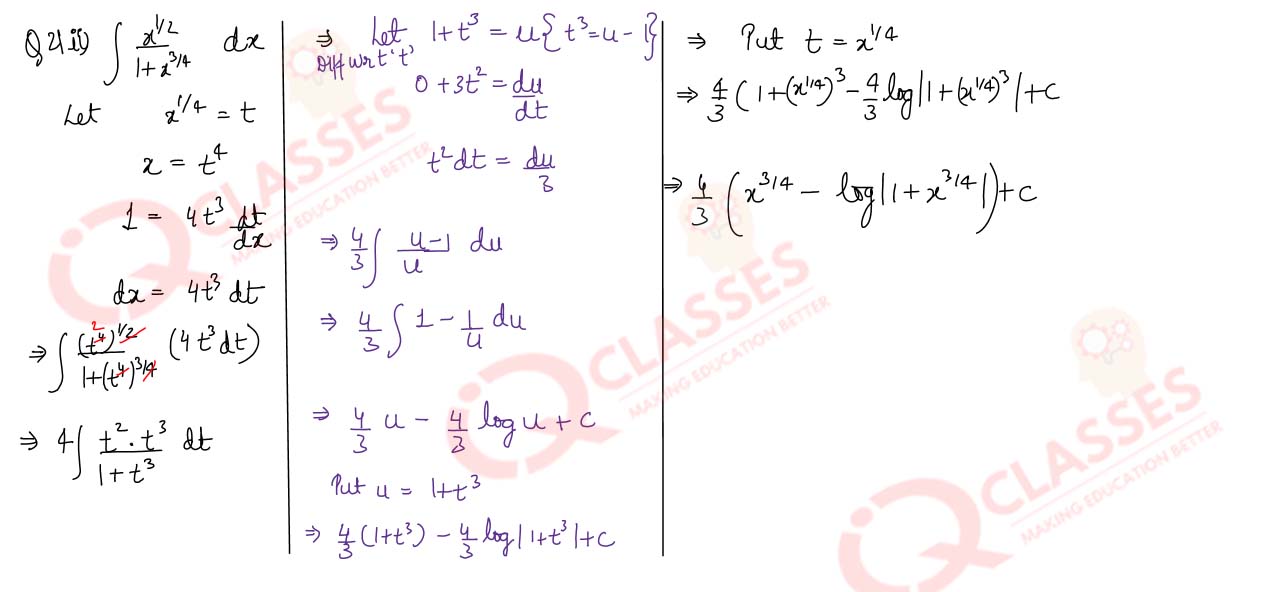 Q 21 ii) ∫ x^{1/2} / (1+x^{3/4}) dx
Let x^{1/4} = t
x = t^4
1 = 4t^3 dt/dx
dx = 4t^3 dt
⇒ ∫ (t^4)^{1/2} / (1+(t^4)^{3/4}) (4t^3 dt)
⇒ 4∫ t^2 . t^3 / (1+t^3) dt
⇒ Let 1+t^3 = u {t^3 = u-1}
Diff wrt 't'
0 + 3t^2 = du/dt
t^2 dt = du/3
⇒ 4/3 ∫ (u-1)/u du
⇒ 4/3 ∫ 1 - 1/u du
⇒ 4/3 u - 4/3 log u + c
Put u = 1+t^3
⇒ 4/3 (1+t^3) - 4/3 log|1+t^3|+c
⇒ Put t = x^{1/4}
⇒ 4/3 (1+(x^{1/4})^3 - 4/3 log|1+(x^{1/4})^3|+c
⇒ 4/3 (x^{3/4} - log|1+x^{3/4}|)+c
IQ CLASSES
MAKING EDUCATION BETTER
IQ CLASSES
MAKING EDUCATION BETTER
IQ CLASSES
MAKING EDUCATION BETTER